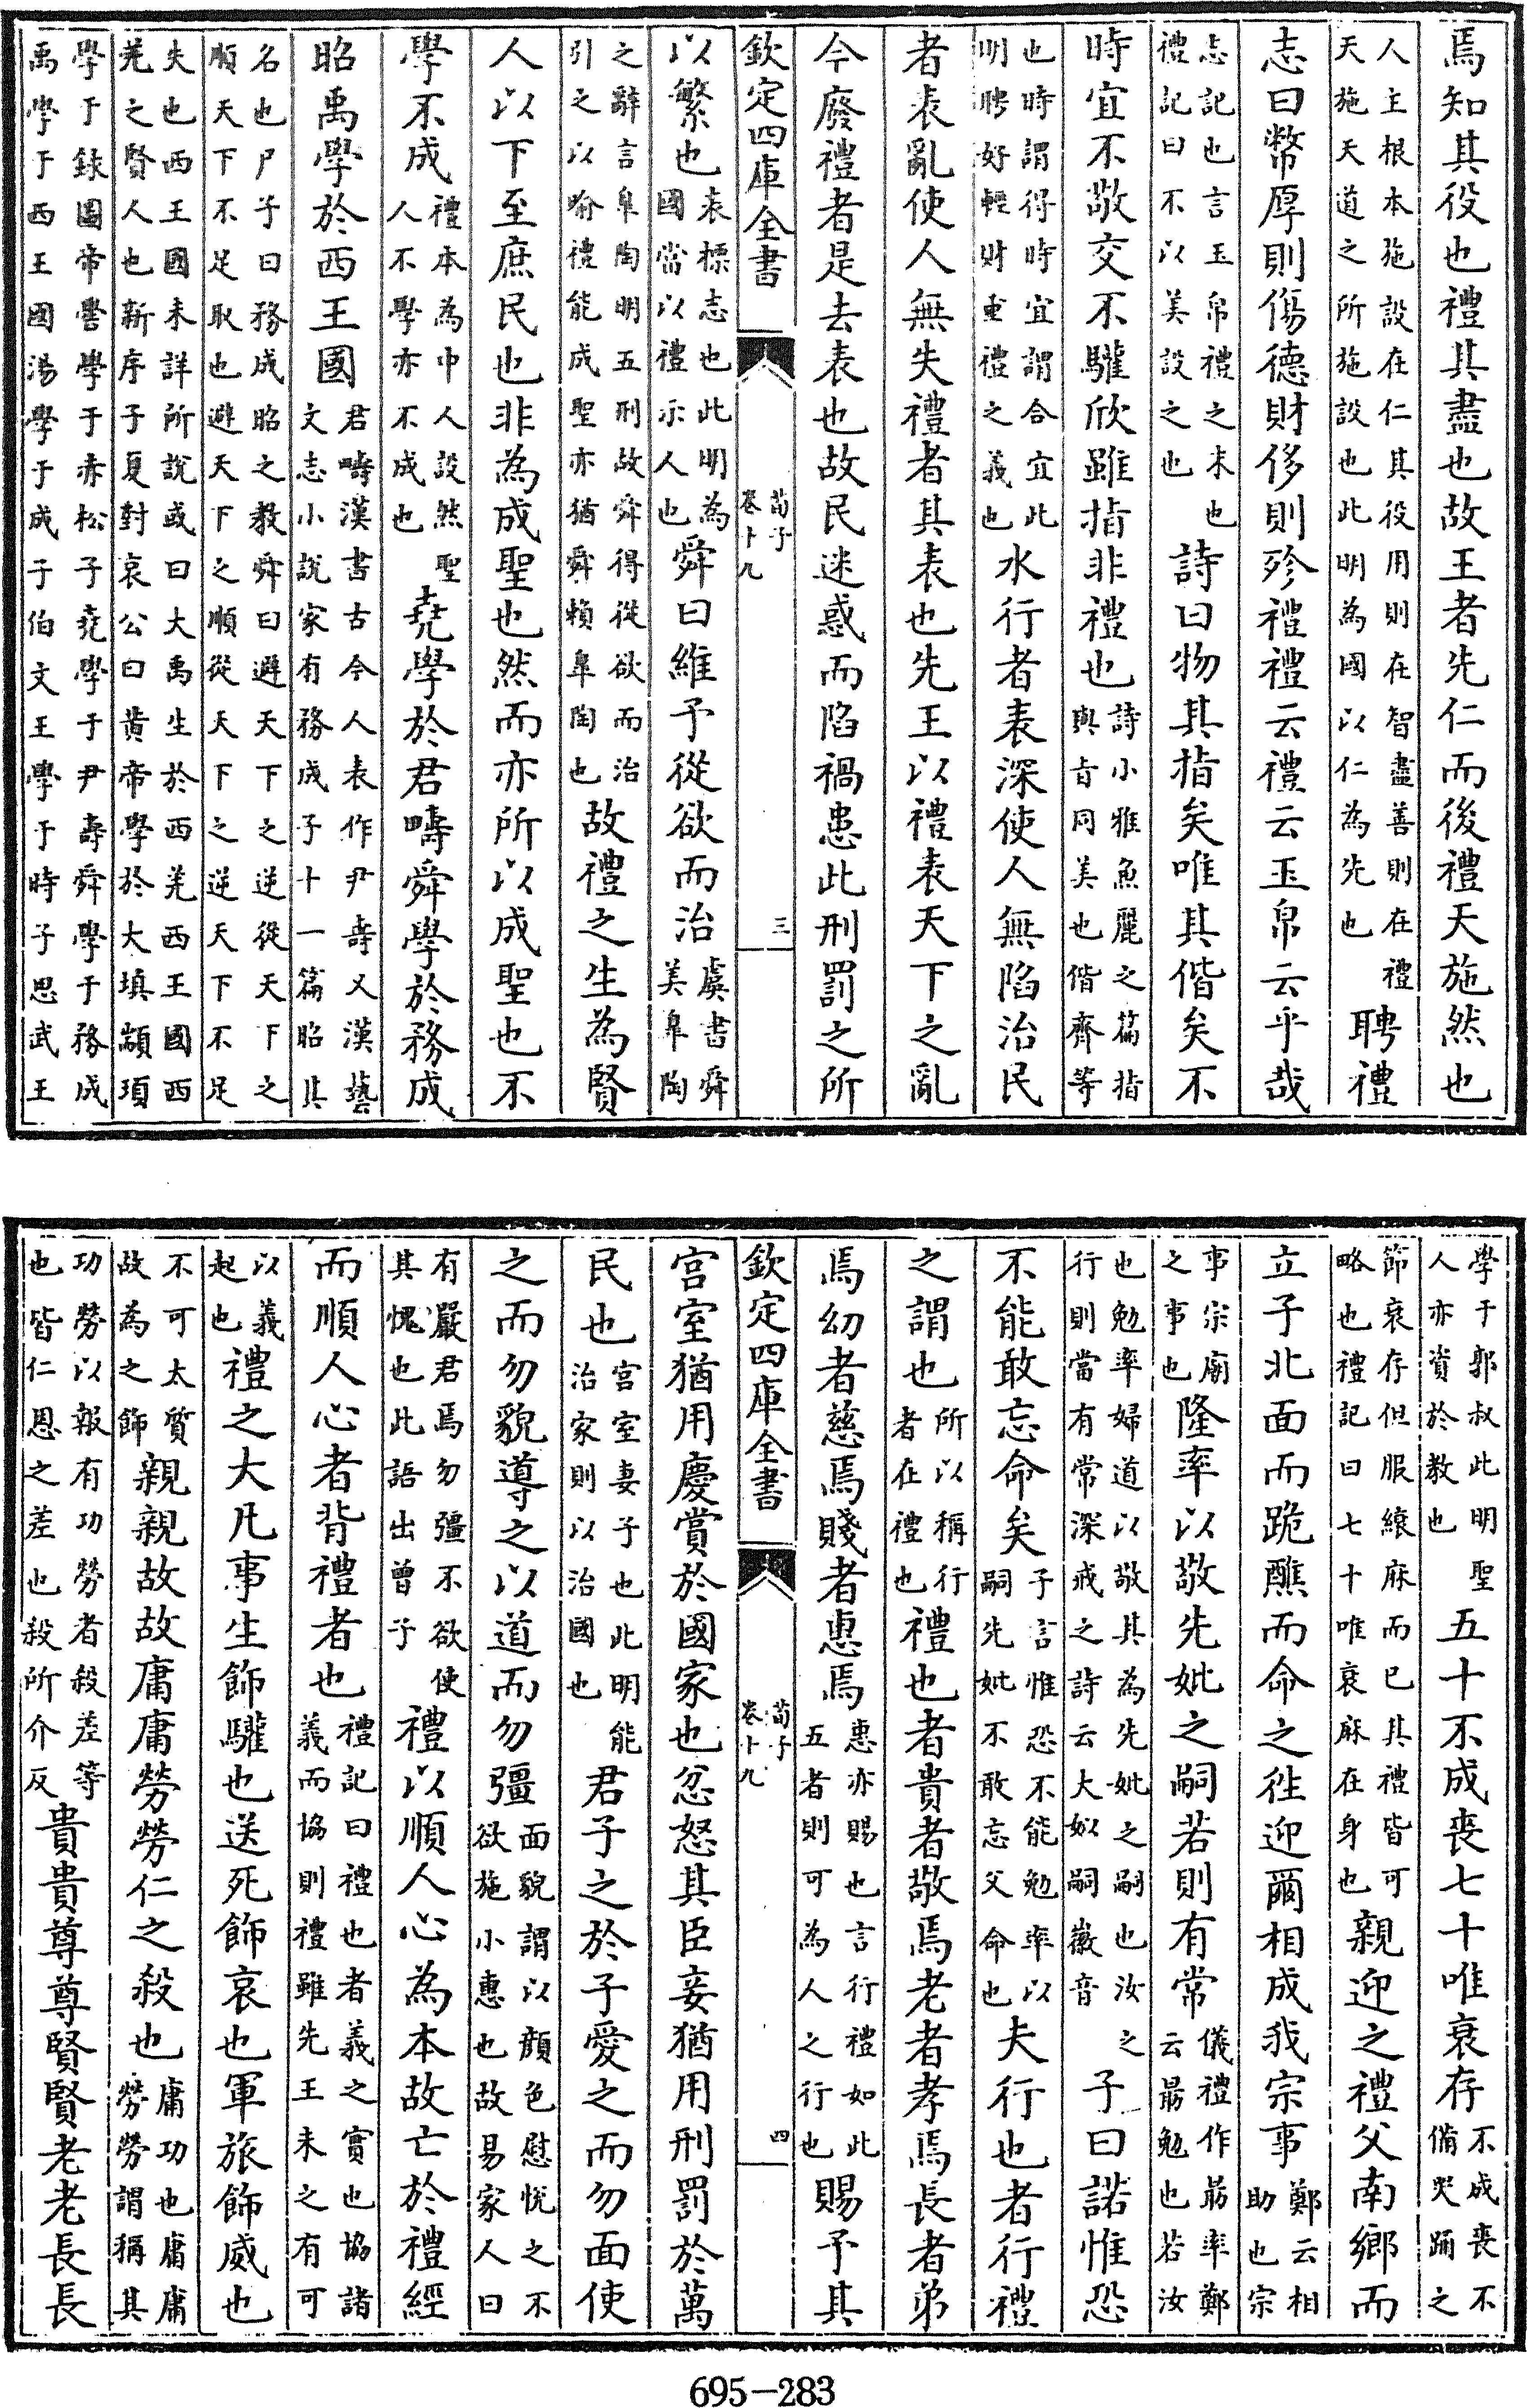 焉知其役也禮其盡也故王者先仁而後禮天施然也
人主根本施設在仁其役用則在智盡善則在禮
天施天道之所施設也此明為國以仁為先也
聘禮
志曰幣厚則傷德財侈則殄禮禮云禮云玉帛云乎哉
志記也言玉帛禮之末也
禮記曰不以美設之也
詩曰物其指矣唯其偕矣不
時宜不敬交不驩欣雖指非禮也
詩小雅魚麗之篇指
與旨同美也偕齊等
也時謂得時宜謂合宜此
明聘好輕財重禮之義也
水行者表深使人無陷治民
者表亂使人無失禮者其表也先王以禮表天下之亂
今廢禮者是去表也故民迷惑而陷禍患此刑罰之所
欽定四庫全書
荀子
卷十九
三
以繁也
表標志也此明為
國當以禮示人也
舜曰維予從欲而治
虞書舜
美臯陶
之辭言臯陶明五刑故舜得從欲而治
引之以喻禮能成聖亦猶舜賴臯陶也
故禮之生為賢
人以下至庶民也非為成聖也然而亦所以成聖也不
學不成
禮本為中人設然聖
人不學亦不成也
堯學於君疇舜學於務成
昭禹學於西王國
君疇漢書古今人表作尹壽又漢藝
文志小說家有務成子十一篇昭其
名也尸子曰務成昭之教舜曰避天下之逆從天下之
順天下不足取也避天下之順從天下之逆天下不足
失也西王國未詳所說或曰大禹生於西羌西王國西
羌之賢人也新序子夏對哀公曰黄帝學於大填顓頊
學于録圖帝嚳學于赤松子堯學于尹壽舜學于務成
禹學于西王國湯學于成子伯文王學于時子思武王
學于郭叔此明聖
人亦資於教也
五十不成喪七十唯衰存
不成喪不
備哭踊之
節衰存但服縗麻而已其禮皆可
略也禮記曰七十唯衰麻在身也
親迎之禮父南鄉而
立子北面而跪醮而命之往迎爾相成我宗事
鄭云相
助也宗
事宗廟
之事也
隆率以敬先妣之嗣若則有常
儀禮作勗率鄭
云勗勉也若汝
也勉率婦道以敬其為先妣之嗣也汝之
行則當有常深戒之詩云大姒嗣徽音
子曰諾惟恐
不能敢忘命矣
子言惟恐不能勉率以
嗣先妣不敢忘父命也
夫行也者行禮
之謂也
所以稱行
者在禮也
禮也者貴者敬焉老者孝焉長者弟
焉幼者慈焉賤者惠焉
惠亦賜也言行禮如此
五者則可為人之行也
賜予其
欽定四庫全書
荀子
卷十九
四
宫室猶用慶賞於國家也忿怒其臣妾猶用刑罰於萬
民也
宫室妻子也此明能
治家則以治國也
君子之於子愛之而勿面使
之而勿貌導之以道而勿彊
面貌謂以顔色慰悅之不
欲施小惠也故易家人曰
有嚴君焉勿彊不欲使
其愧也此語出曾子
禮以順人心為本故亡於禮經
而順人心者背禮者也
禮記曰禮也者義之實也協諸
義而協則禮雖先王未之有可
以義
起也
禮之大凡事生飾驩也送死飾哀也軍旅飾威也
不可太質
故為之飾
親親故故庸庸勞勞仁之殺也
庸功也庸庸
勞勞謂稱其
功勞以報有功勞者殺差等
也皆仁恩之差也殺所介反
貴貴尊尊賢賢老老長長
695-283